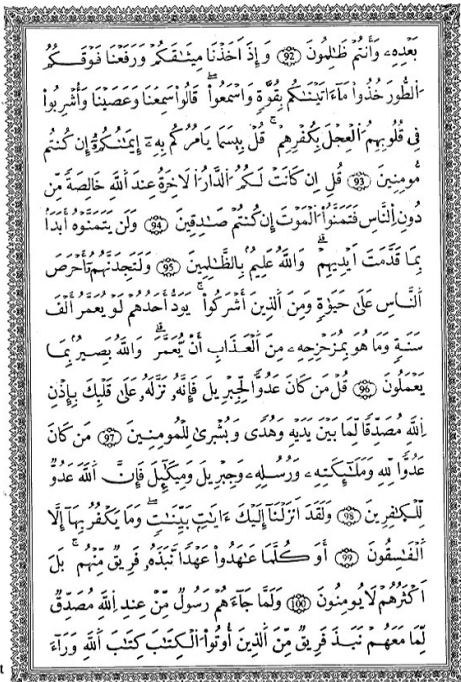 بَعْدِهِۦ وَأَنتُمْ ظَٰلِمُونَ 92 وَإِذَ اَخَذْنَا مِيثَٰقَكُمْ وَرَفَعْنَا فَوْقَكُمُ
اُلطُّورَ خُذُوا۟ مَآ ءَاتَيْنَٰكُم بِقُوَّةٍ وَاسْمَعُوا۟ قَالُوا۟ سَمِعْنَا وَعَصَيْنَا وَأُشْرِبُوا۟
فِى قُلُوبِهِمُ اُلْعِجْلَ بِكُفْرِهِمْ قُلْ بِيسَمَا يَامُرُكُم بِهِۦٓ إِيمَٰنُكُمُۥٓ إِن كُنتُم
مُّومِنِينَ 93 قُلِ اِن كَانَتْ لَكُمُ اُلدَّارُ اُلَاخِرَةُ عِندَ اَللَّهِ خَالِصَةً مِّن
دُونِ اِلنَّاسِ فَتَمَنَّوُا۟ اُلْمَوْتَ إِن كُنتُمْ صَٰدِقِينَ 94 وَلَنْ يَتَمَنَّوْهُ أَبَدَاۢ
بِمَا قَدَّمَتَ اَيْدِيهِمْ وَاللَّهُ عَلِيمُۢ بِالظَّٰلِمِينَ 95 وَلَتَجِدَنَّهُمُۥٓ أَحْرَصَ
اَلنَّاسِ عَلَىٰ حَيَوٰةٍ وَمِنَ اَلذِينَ أَشْرَكُوا۟ يَوَدُّ أَحَدُهُمْ لَوْ يُعَمَّرُ أَلْفَ
سَنَةٍ وَمَا هُوَ بِمُزَحْزِحِهِۦ مِنَ اَلْعَذَابِ أَنْ يُّعَمَّرَ وَاللَّهُ بَصِيرُۢ بِمَا
يَعْمَلُونَ 96 قُلْ مَن كَانَ عَدُوًّا لِّجِبْرِيلَ فَإِنَّهُۥ نَزَّلَهُۥ عَلَىٰ قَلْبِكَ بِإِذْنِ
اِللَّهِ مُصَدِّقًا لِّمَا بَيْنَ يَدَيْهِ وَهُدًى وَبُشْرَىٰ لِلْمُومِنِينَ 97 مَن كَانَ
عَدُوًّا لِّلهِ وَمَلَٰٓئِكَتِهِۦ وَرُسُلِهِۦ وَجِبْرِيلَ وَمِيكَٰٓئِلَ فَإِنَّ اَللَّهَ عَدُوٌّ
لِّلْكَٰفِرِينَ 98 وَلَقَدَ اَنزَلْنَآ إِلَيْكَ ءَايَٰتِۭ بَيِّنَٰتٍ وَمَا يَكْفُرُ بِهَآ إِلَّا
اَلْفَٰسِقُونَ 99 أَوَكُلَّمَا عَٰهَدُوا۟ عَهْدًا نَّبَذَهُۥ فَرِيقٌ مِّنْهُم بَلَ
اَكْثَرُهُمْ لَا يُومِنُونَ 100 وَلَمَّا جَآءَهُمْ رَسُولٌ مِّنْ عِندِ اِللَّهِ مُصَدِّقٌ
لِّمَا مَعَهُمْ نَبَذَ فَرِيقٌ مِّنَ اَلذِينَ أُوتُوا۟ اُلْكِتَٰبَ كِتَٰبَ اَللَّهِ وَرَآءَ